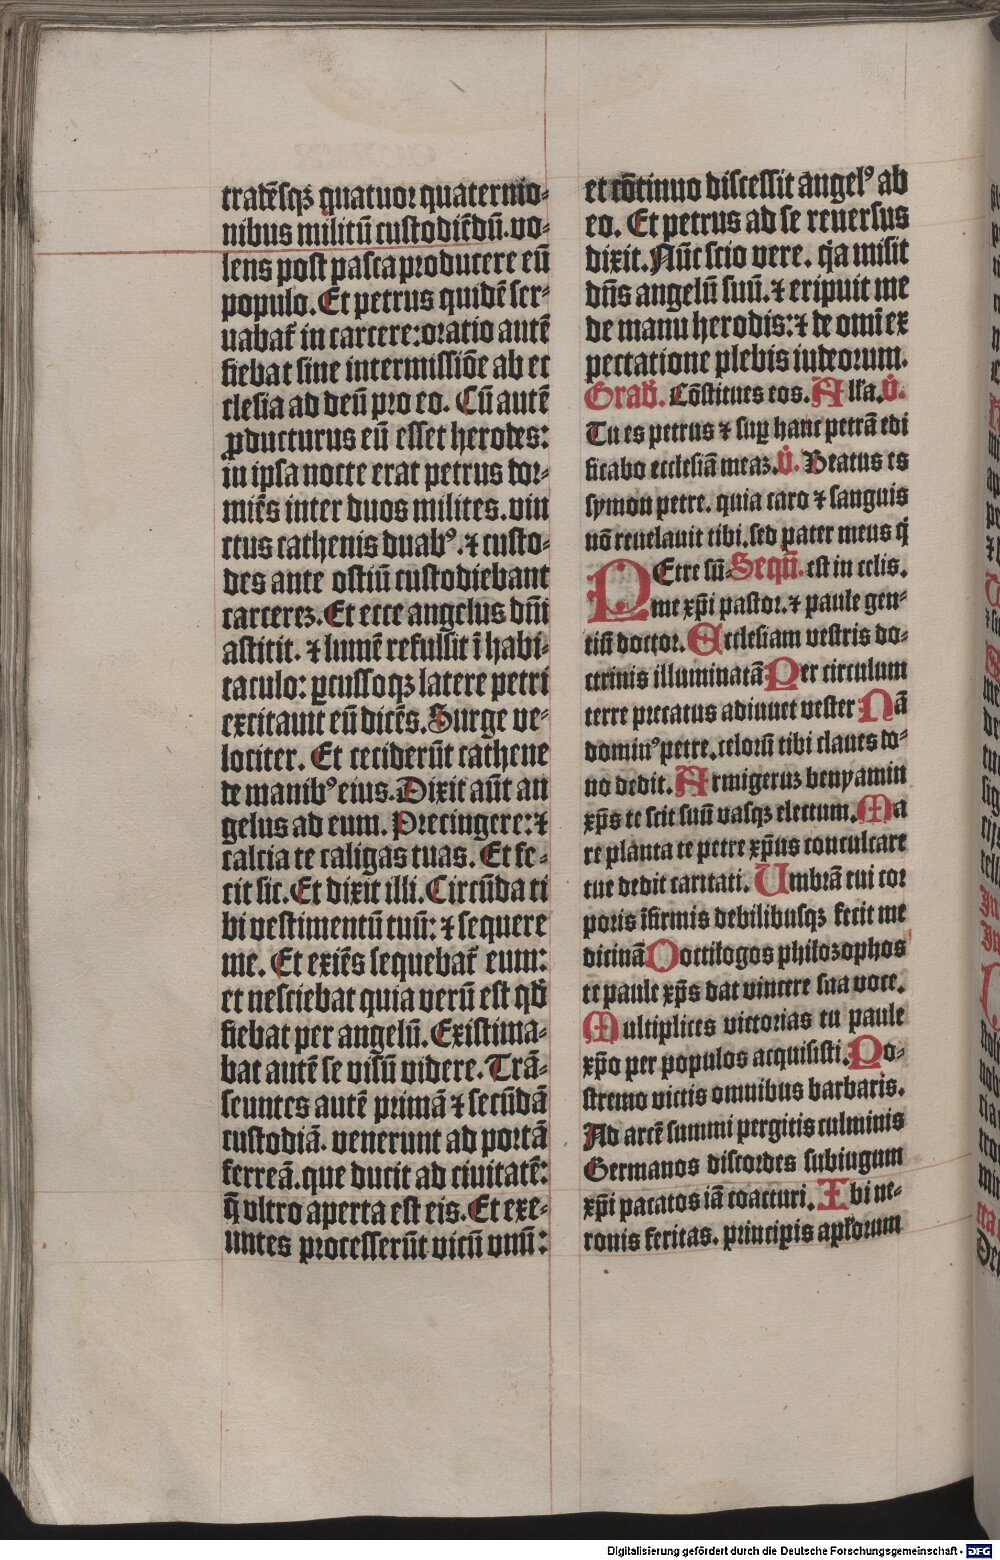 tradēsqꝫ quatuor quaternio-
nibus militū custodiēdū. vo-
lens post pasca producere eū
populo. Et petrus quidē ser-
uabat᷑ in carcere: oratio autē
fiebat sine intermissiōe ab ec
clesia ad deū pro eo. Cū autē
ꝓducturus eū esset herodes:
in ipsa nocte erat petrus dor-
miēs inter duos milites. vin
ctus cathenis duabꝰ. ⁊ custo-
des ante ostiū custodiebant
carcereꝫ. Et ecce angelus dn̄i
astitit. ⁊ lumē refulsit ī habi-
taculo: ꝑcussoqꝫ latere petri
excitauit eū dicēs. Surge ve-
lociter. Et ceciderūt cathene
de manibꝰ eius. Dixit aūt an
gelus ad eum. Precingere: ⁊
calcia te caligas tuas. Et fe-
cit sic. Et dixit illi. Circūda ti
bi vestimentū tuū: ⁊ sequere
me. Et exiēs sequebat᷑ eum:
et nesciebat quia verū est qđ
fiebat per angelū. Existima-
bat autē se visū videre. Trā-
seuntes autē primā ⁊ secūdā
custodiā. venerunt ad portā
ferreā. que ducit ad ciuitatē:
q̄ vltro aperta est eis. Et exe-
untes processerūt vicū vnū:
et cōtinuo discessit angelꝰ ab
eo. Et petrus ad se reuersus
dixit. Nūc scio vere. qꝛ misit
dn̄s angelū suū. ⁊ eripuit me
de manu herodis: ⁊ de omī ex
pectatione plebis iudeorum.
Grad̄. Cōstitues eos. Alľa. V̊.
Tu es petrus ⁊ suꝑ hanc petrā edi
ficabo ecclesiā meaꝫ. V̊. Beatus es
symon petre. quia caro ⁊ sanguis
nō reuelauit tibi. sed pater meus q̇
PEtre sū- Sequn̄. est in celis.
me xp̄i pastor. ⁊ paule gen-
tiū doctor. Ecclesiam vestris do-
ctrinis illuminatā Per circulum
terre precatus adiuuet vester Nā
dominꝰ petre. celorū tibi claues do-
no dedit. Armigeruꝫ benyamin
xp̄s te scit suū vasqꝫ electum. Ma
re planta te petre xp̄us conculcare
tue dedit caritati. Umbrā tui cor
poris īfirmis debilibusqꝫ fecit me
dicinā Doctilogos philozophos
te paule xp̄s dat vincere sua voce.
Multiplices victorias tu paule
xp̄o per populos acquisisti. Po-
stremo victis omnibus barbaris.
Ad arcē summi pergitis culminis
Germanos discordes subiugum
xp̄i pacatos iā coacturi. Ibi ne-
ronis feritas. principis apľorum
Digitalisierung gefördert durch die Deutsche Forschungsgemeinschaft - DFG